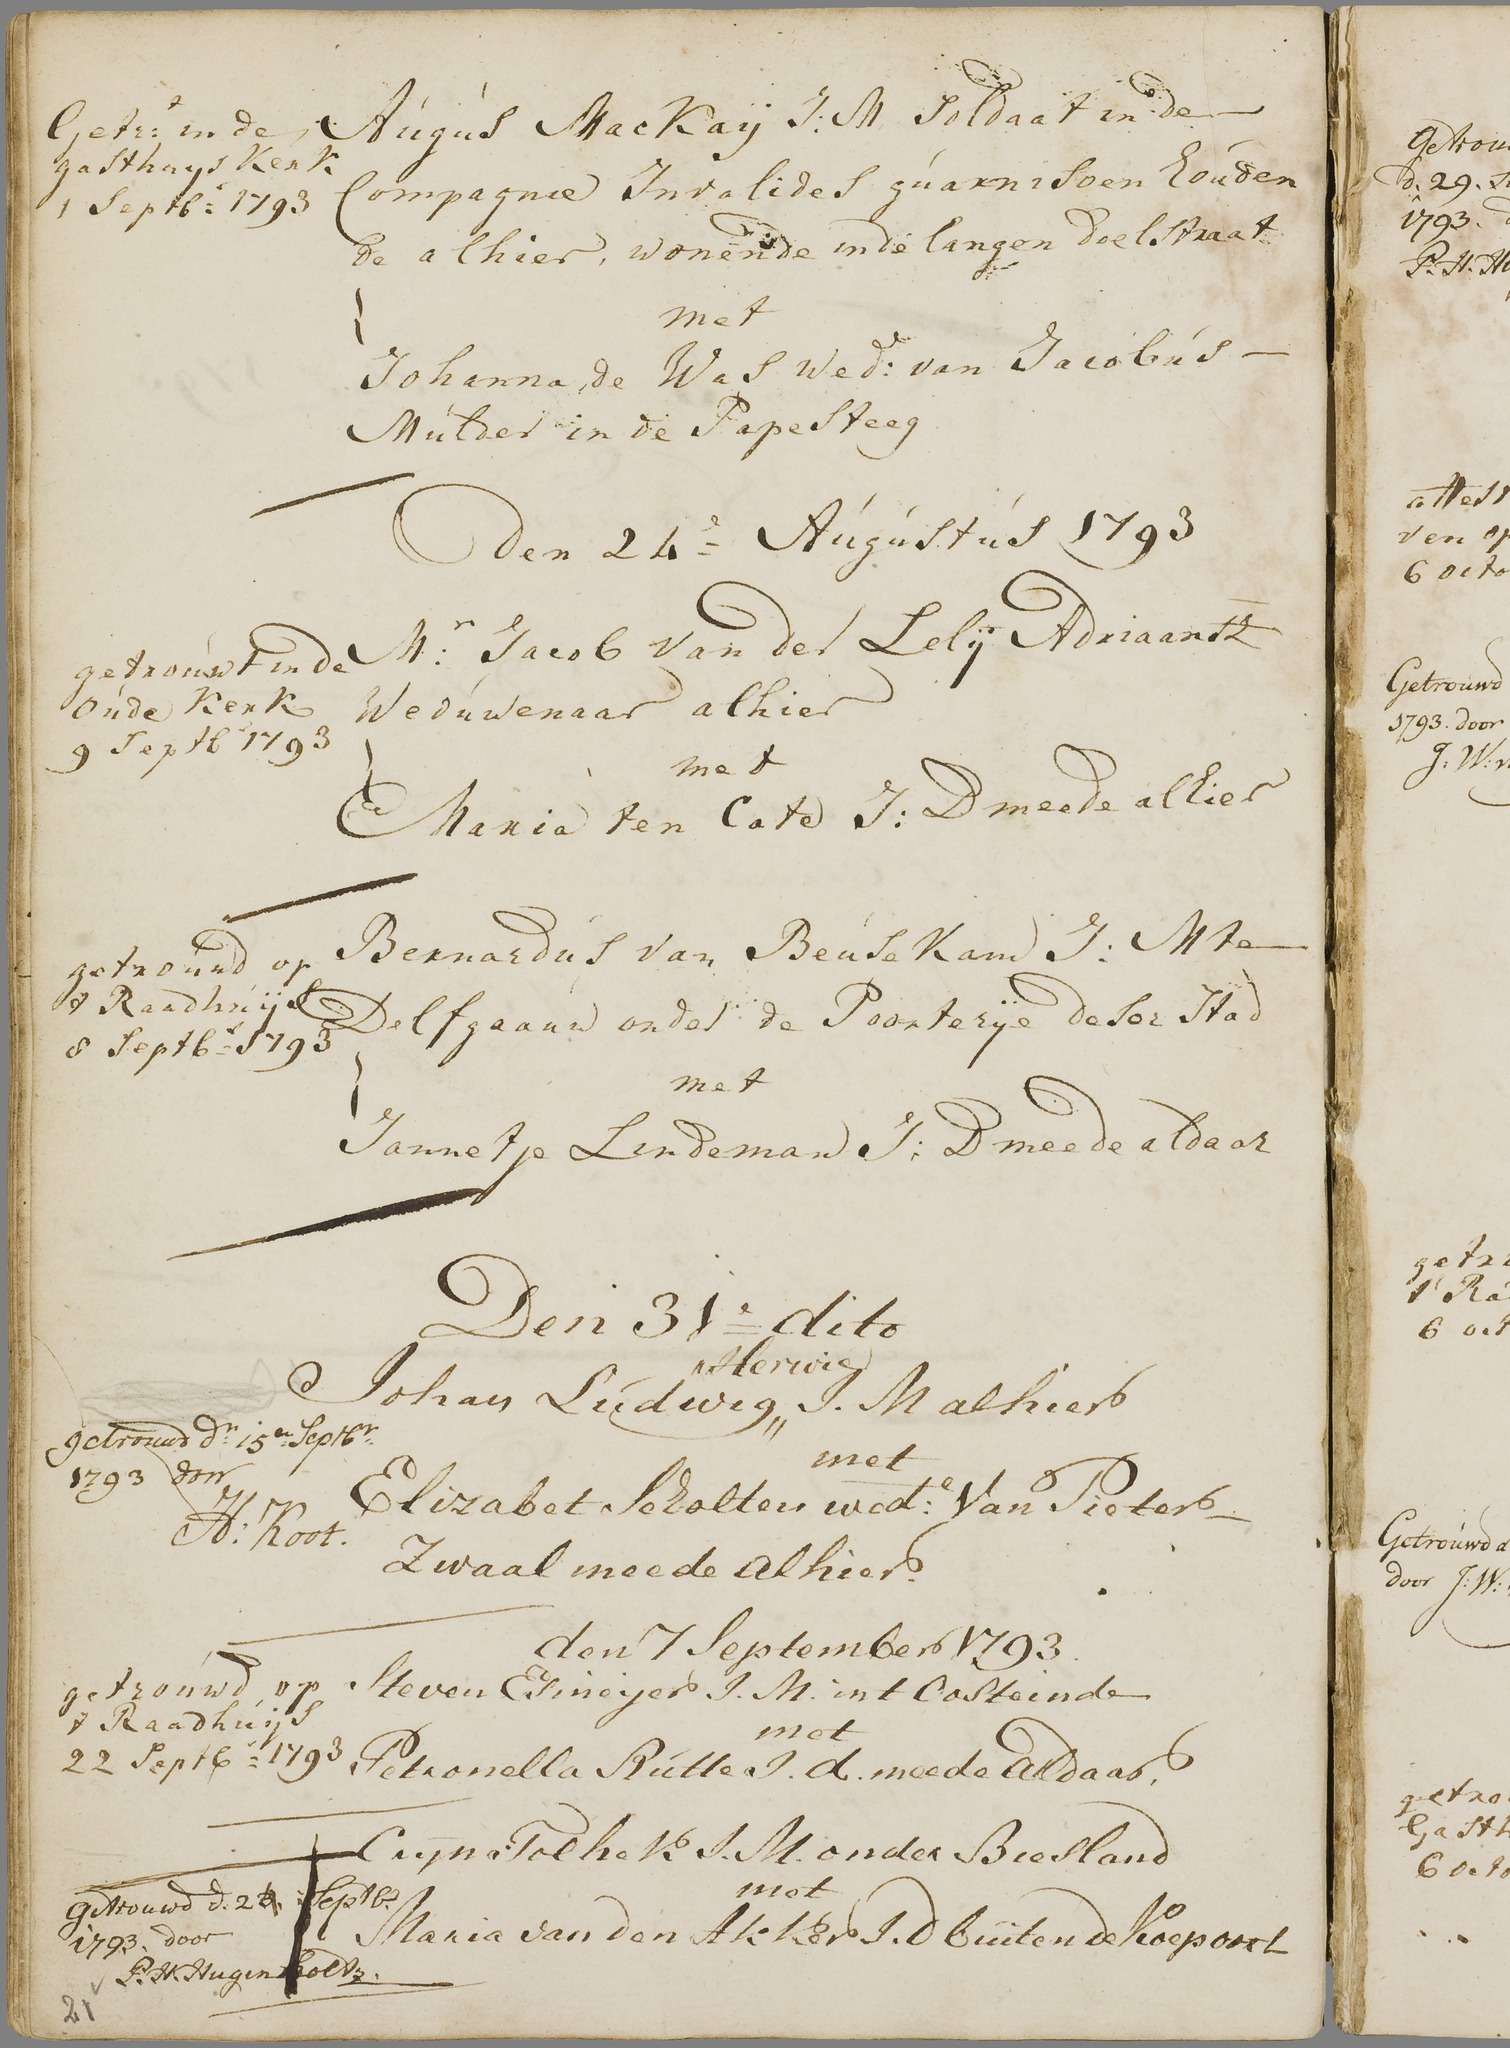 Getr: in de
gasthuys Kerk
1 Septb: 1793
Aúgús MacKaij J:M Soldaat in de
Compagnie Invalides gúarnisoen hoúden
de alhier, wonende in de langen doelstraat
met
Johanna de Was Wed: van Jacobús
Múlder in de Papesteeg
Den 24e Aúgústús 1793
getroúwt in de
Oúde Kerk
9 Septb 1793
Mr: Jacob van der Lelij Adriaansz
Wedúwenaar alhier
met
Maria ten Cate J:D meede alhier
getrouwd op
t Raadhúijs
8 Septb: 1793
Bernardús van Beúsekam J:M te
Delfgaauw onder de Poorterije deser Stad
met
Jannetje Lindeman J:D meede aldaar
Den 31e dito
Herwig
Johan Ludwig,, J.M alhier
getrouwd dn 15en Septbr
1793 door
H: Koot.
met
Elizabet Scholten wede: Van Pieter
Zwaal meede alhier.
den 7 September 1793.
getroúwd op
t Raadhúijs
22 Septb: 1793
Steven Esmeijer J.M. int Oosteinde
met
Petronella Rútte J.d. meede aldaar.
Crijn Tolhek J.M. onder Biesland
getrouwd d. 24 Septbr
1793. door
P.H. Hugenholtz.
met
Maria van den Akker J.D buiten de Koepoort
21
getrou
d. 29. S
1793. d
P.H. H
attest
ven op
6 octo
Getrouwd
1793. door
J:W: v
getro
t Ra
6 oct
Getroúwd d
door J:W:
getro
Gasth
6 octo